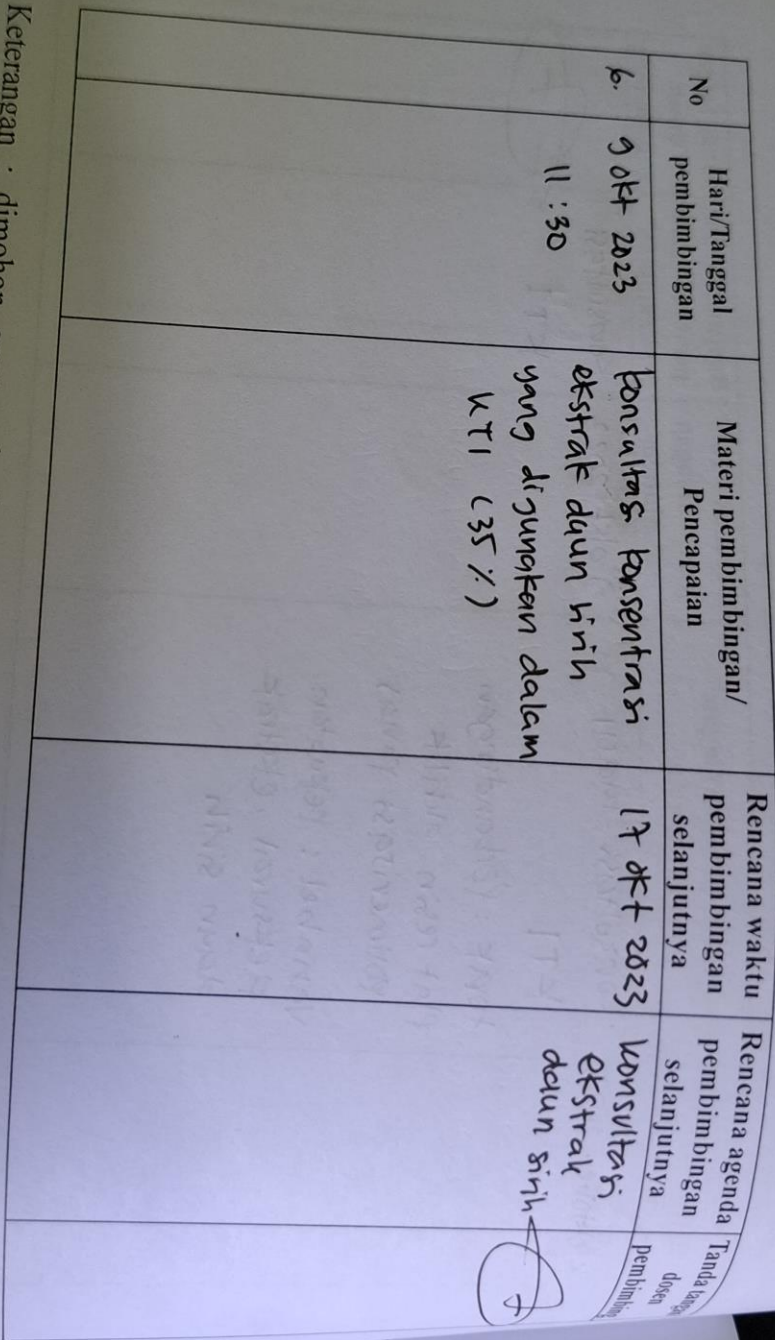 No
Hari/Tanggal
pembimbingan
Materi pembimbingan/
Pencapaian
Rencana waktu
pembimbingan
selanjutnya
Rencana agenda
pembimbingan
selanjutnya
Tanda
dosen
pembimbing
6.
9 okt 2023
11:30
konsultasi konsentrasi
ekstrak daun sirih
yang digunakan dalam
KTI (35%)
17 okt 2023
konsultasi
ekstrak
daun sirih
Keterangan :